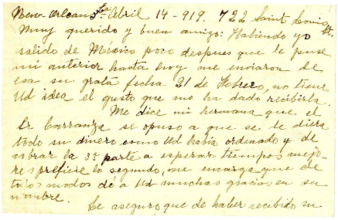 New Orleans La Abril 14-919. 722 Saint Louis St
Muy querido y buen amigo: Habiendo yo
salido de Mexico poco despues que le puse
mi anterior hasta hoy me enviaron de
esa su grata fecha 31 de Febrero, no tiene
Ud idea el gusto que me ha dado recibirla.
Me dice mi hermana que el
Sr Carranza se opuso a que se le diera
todo su dinero como Ud habia ordenado y de
cobrar la 3a parte a esperar tiempos mejo-
res prefiere lo segundo, me encarga que de
todos modos dé a Ud muchas gracias en su
nombre.
Le aseguro que de haber recibido su